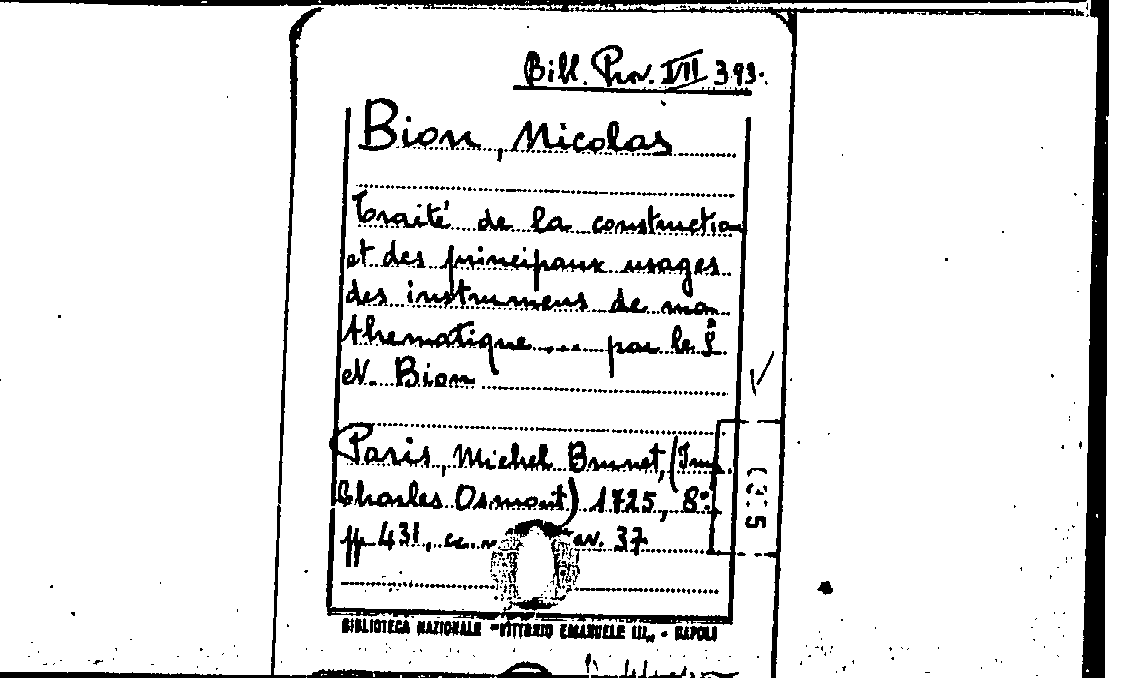 Bibl. Prov. VII 393.
Bion, Nicolas
Traité de la construction
et des principaux usages
des instrumens de ma
thematique ... par le S.
N. Bion
Paris, Michel Brunet, (Imp.
Charles Osmont) 1725, 8°,
pp 431, tav. 37
BIBLIOTECA NAZIONALE "VITTORIO EMANUELE III" - NAPOLI